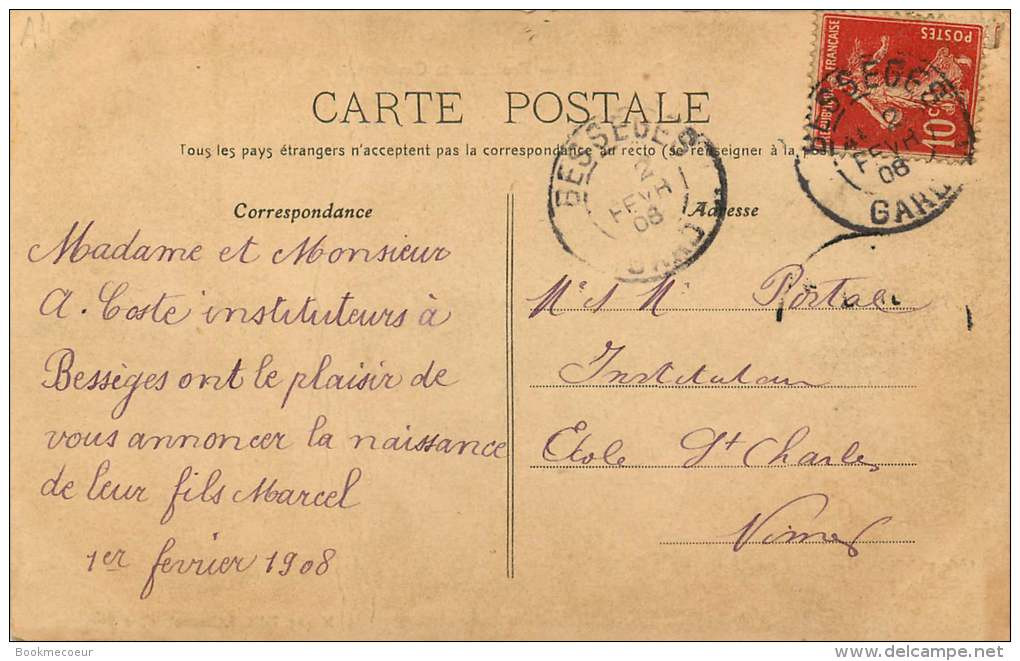 CARTE POSTALE
Tous les pays étrangers n'acceptent pas la correspondance au recto (se renseigner à la poste
Correspondance
Madame et Monsieur
A. Coste instituteurs à
Bessèges ont le plaisir de
vous annoncer la naissance
de leur fils Marcel
1er fevrier 1908
Adresse
Portal
Instituteur
Ecole St Charles
Nimes
BESSEGES
2
FEVR
08
GARD
BESSEGES
2
FEVR
08
GARD
REPUBLIQUE FRANÇAISE
POSTES
10c
Bookmecoeur
delcampe.net